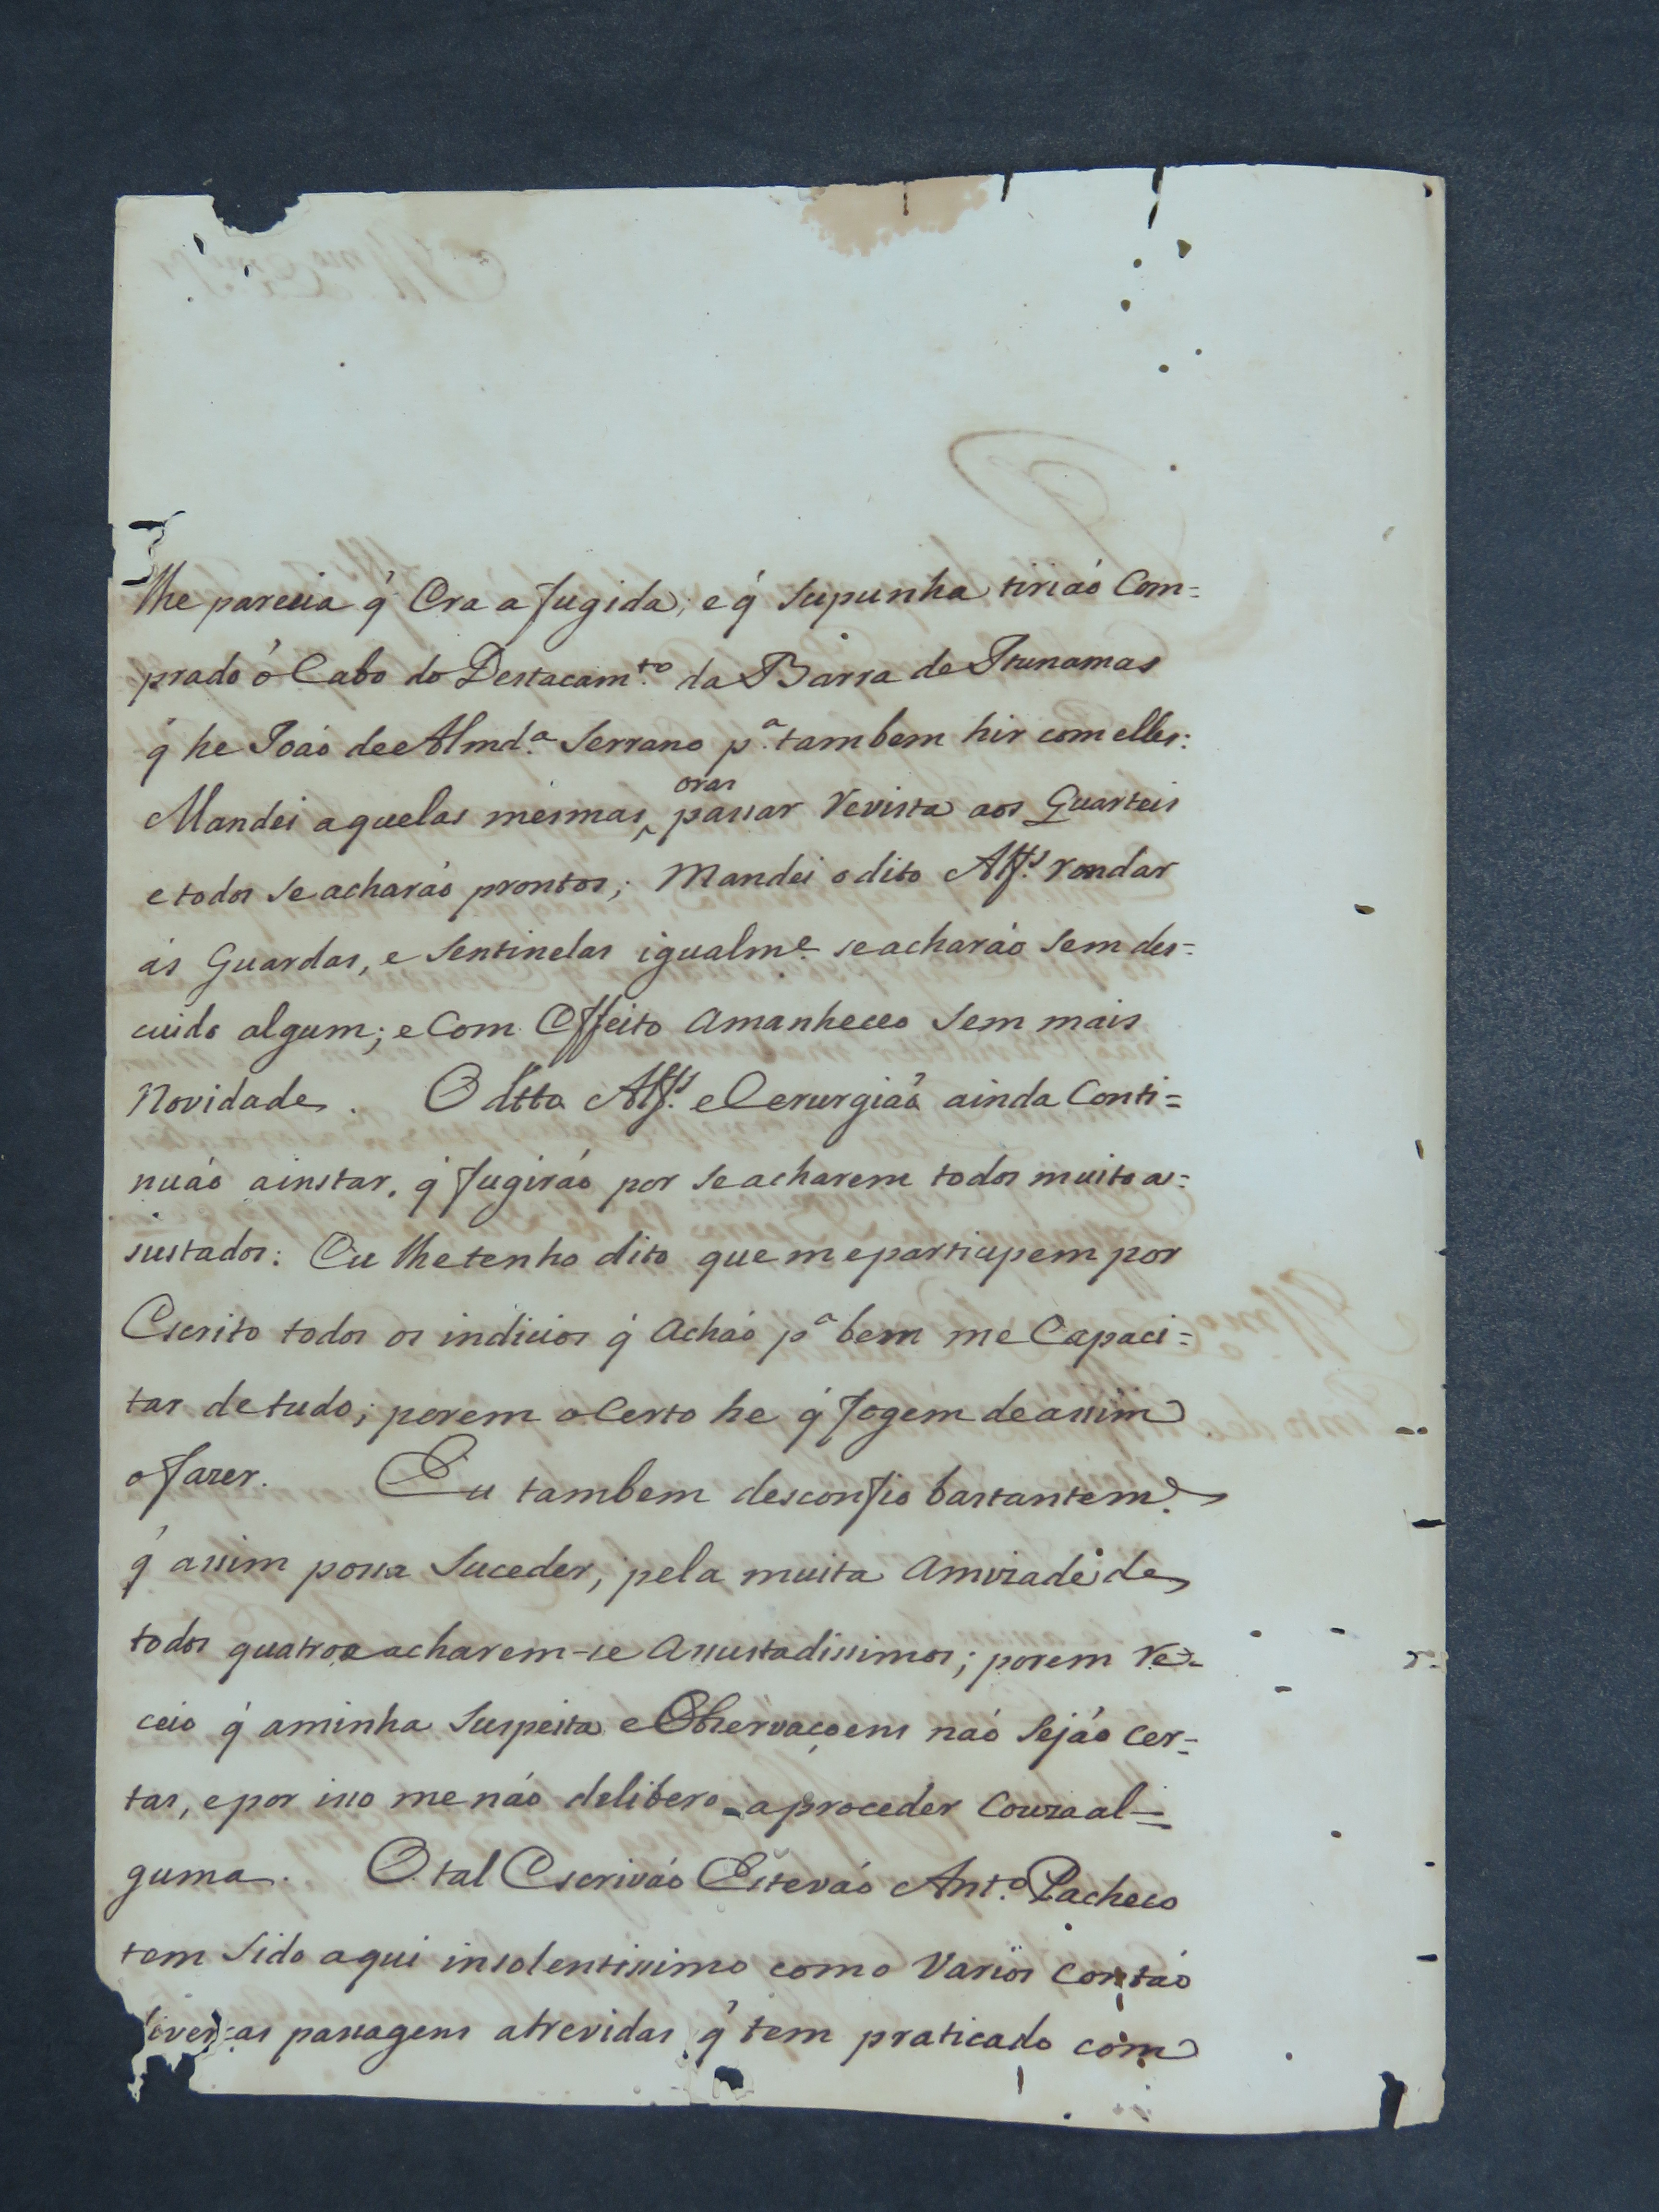 lhe parecia q̃ Era a fugida; e q̃ Supunha tiriaó Com=
prado ó Cabo do Destacam.to da Barra de Itunamas
q̃ he Joaó de Almd.a Serrano p.a tambem hir com elles:
Mandei aquelas mesmas oras passar Revista aos Quarteis
e todos se acharaó prontos; Mandei o dito Alf.s rondar
ás Guardas, e Sentinelas igualm.e se acharaó Sem des=
cuido algum; e Com Effeito Amanheceo Sem mais
Novidade. O ditto Alf.s e Cerurgiaó ainda Conti=
nuaó a instar, q̃ fugiraó por se acharem todos muito as=
sustados: Eu lhe tenho dito que me participem por
Escrito todos os indicios q̃ Achaó p.a bem me Capaci=
tar de tudo; porem o Certo he q̃ fogem de assim
o fazer. Eu tambem desconfio bastantem.e
q̃ assim possa Suceder, pela muita Amizade de
todos quatro e acharem-se Assustadissimos; porem Re=
ceio q̃ a minha Suspeita e Observaçoens naó Sejaó Cer=
tas, e por isso me naó delibero a proceder Couza al=
guma. O tal Escrivaó Estevaó Ant.o Pacheco
tem Sido aqui insolentissimo como Varios Contaó
diversas passagens atrevidas q̃ tem praticado com